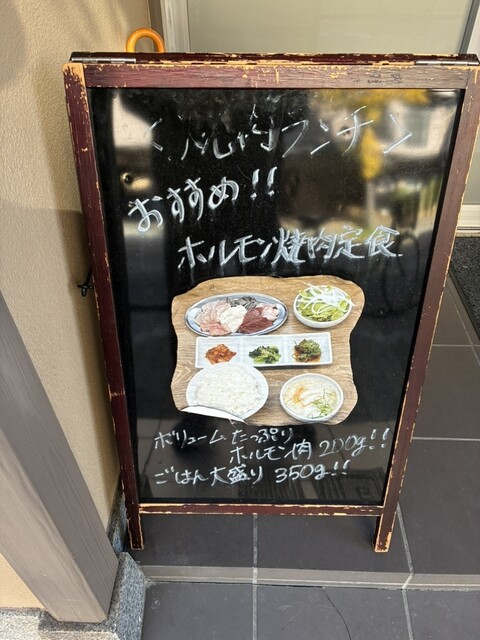 焼肉ランチ
おすすめ!!
ホルモン焼肉定食
ボリュームたっぷり
ホルモン肉 200g!!
ごはん大盛り 350g!!